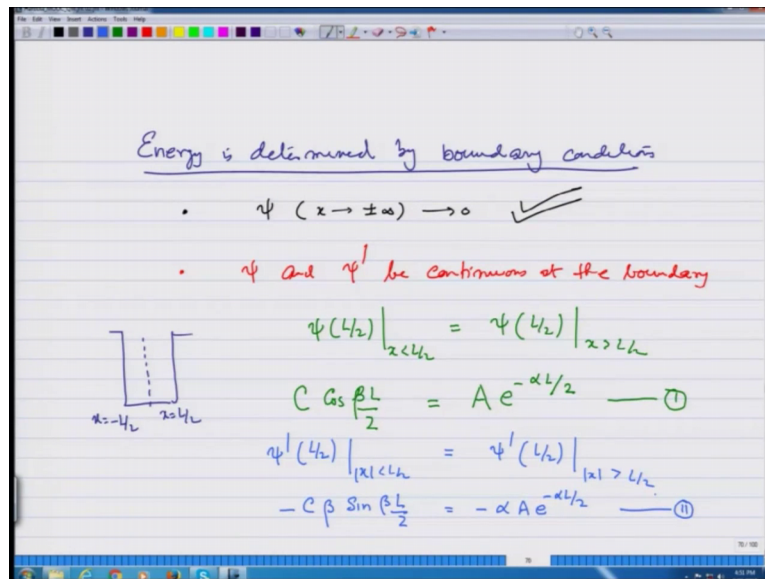 File Edit View Insert Actions Tools Help
Energy is determined by boundary conditions
• ψ (x → ±∞) → 0 ✓
• ψ and ψ' be continuous at the boundary
ψ(L/2)|x<L/2 = ψ(L/2)|x>L/2
C Cos βL/2 = A e^{-αL/2} —— (I)
x=-L/2 x=L/2
ψ'(L/2)||x|<L/2 = ψ'(L/2)||x|>L/2
-Cβ Sin βL/2 = -αA e^{-αL/2} —— (II)
70 / 100
70
4:51 PM